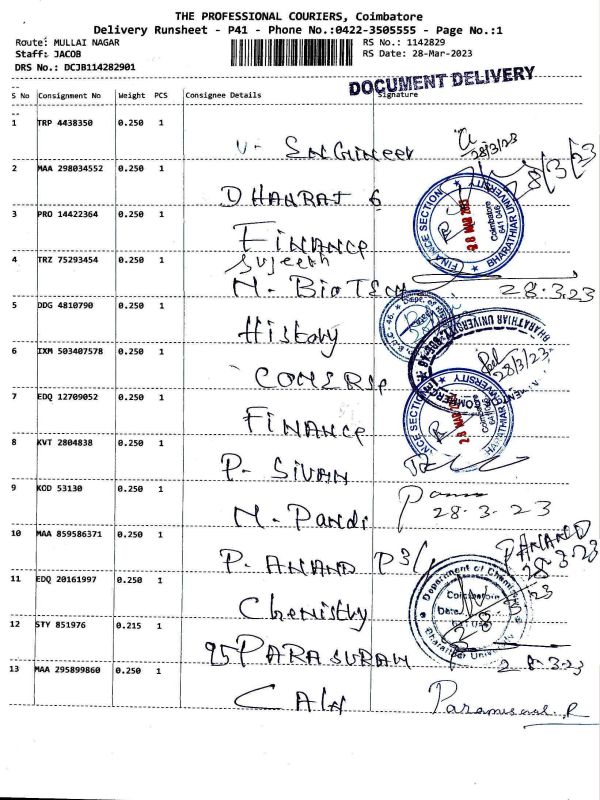 THE PROFESSIONAL COURIERS, Coimbatore
Delivery Runsheet - P41 - Phone No.:0422-3505555 - Page No.:1
Route: MULLAI NAGAR RS No.: 1142829
Staff: JACOB RS Date: 28-Mar-2023
DRS No.: DCJB114282901
DOCUMENT DELIVERY
S No Consignment No Weight PCS Consignee Details Signature
1 TRP 4438350 0.250 1
28/3/23
2 MAA 298034552 0.250 1 28/3/23
DHANRAJ 6
3 PRO 14422364 0.250 1
FINANCE
FINANCE SECTION BHARATHIAR UNIVERSITY Coimbatore 641 046 28 MAR 2023
4 TRZ 75293454 0.250 1 Sujeesh
M. BioTECH 28.3.23
5 DDG 4810790 0.250 1
History
BHARATHIAR UNIVERSITY
6 IXM 503407578 0.250 1 28/3/23
7 EDQ 12709052 0.250 1
FINANCE
8 KVT 2804838 0.250 1
P. SIVAN
9 KOD 53130 0.250 1
M. Pandi 28.3.23
10 MAA 859586371 0.250 1
P. ANAND PANAND
28.3.23
11 EDQ 20161997 0.250 1
Chemistry
Department of Chemistry Coimbatore Date
12 STY 851976 0.215 1
PARASURAM 28.3.23
13 MAA 295899860 0.250 1